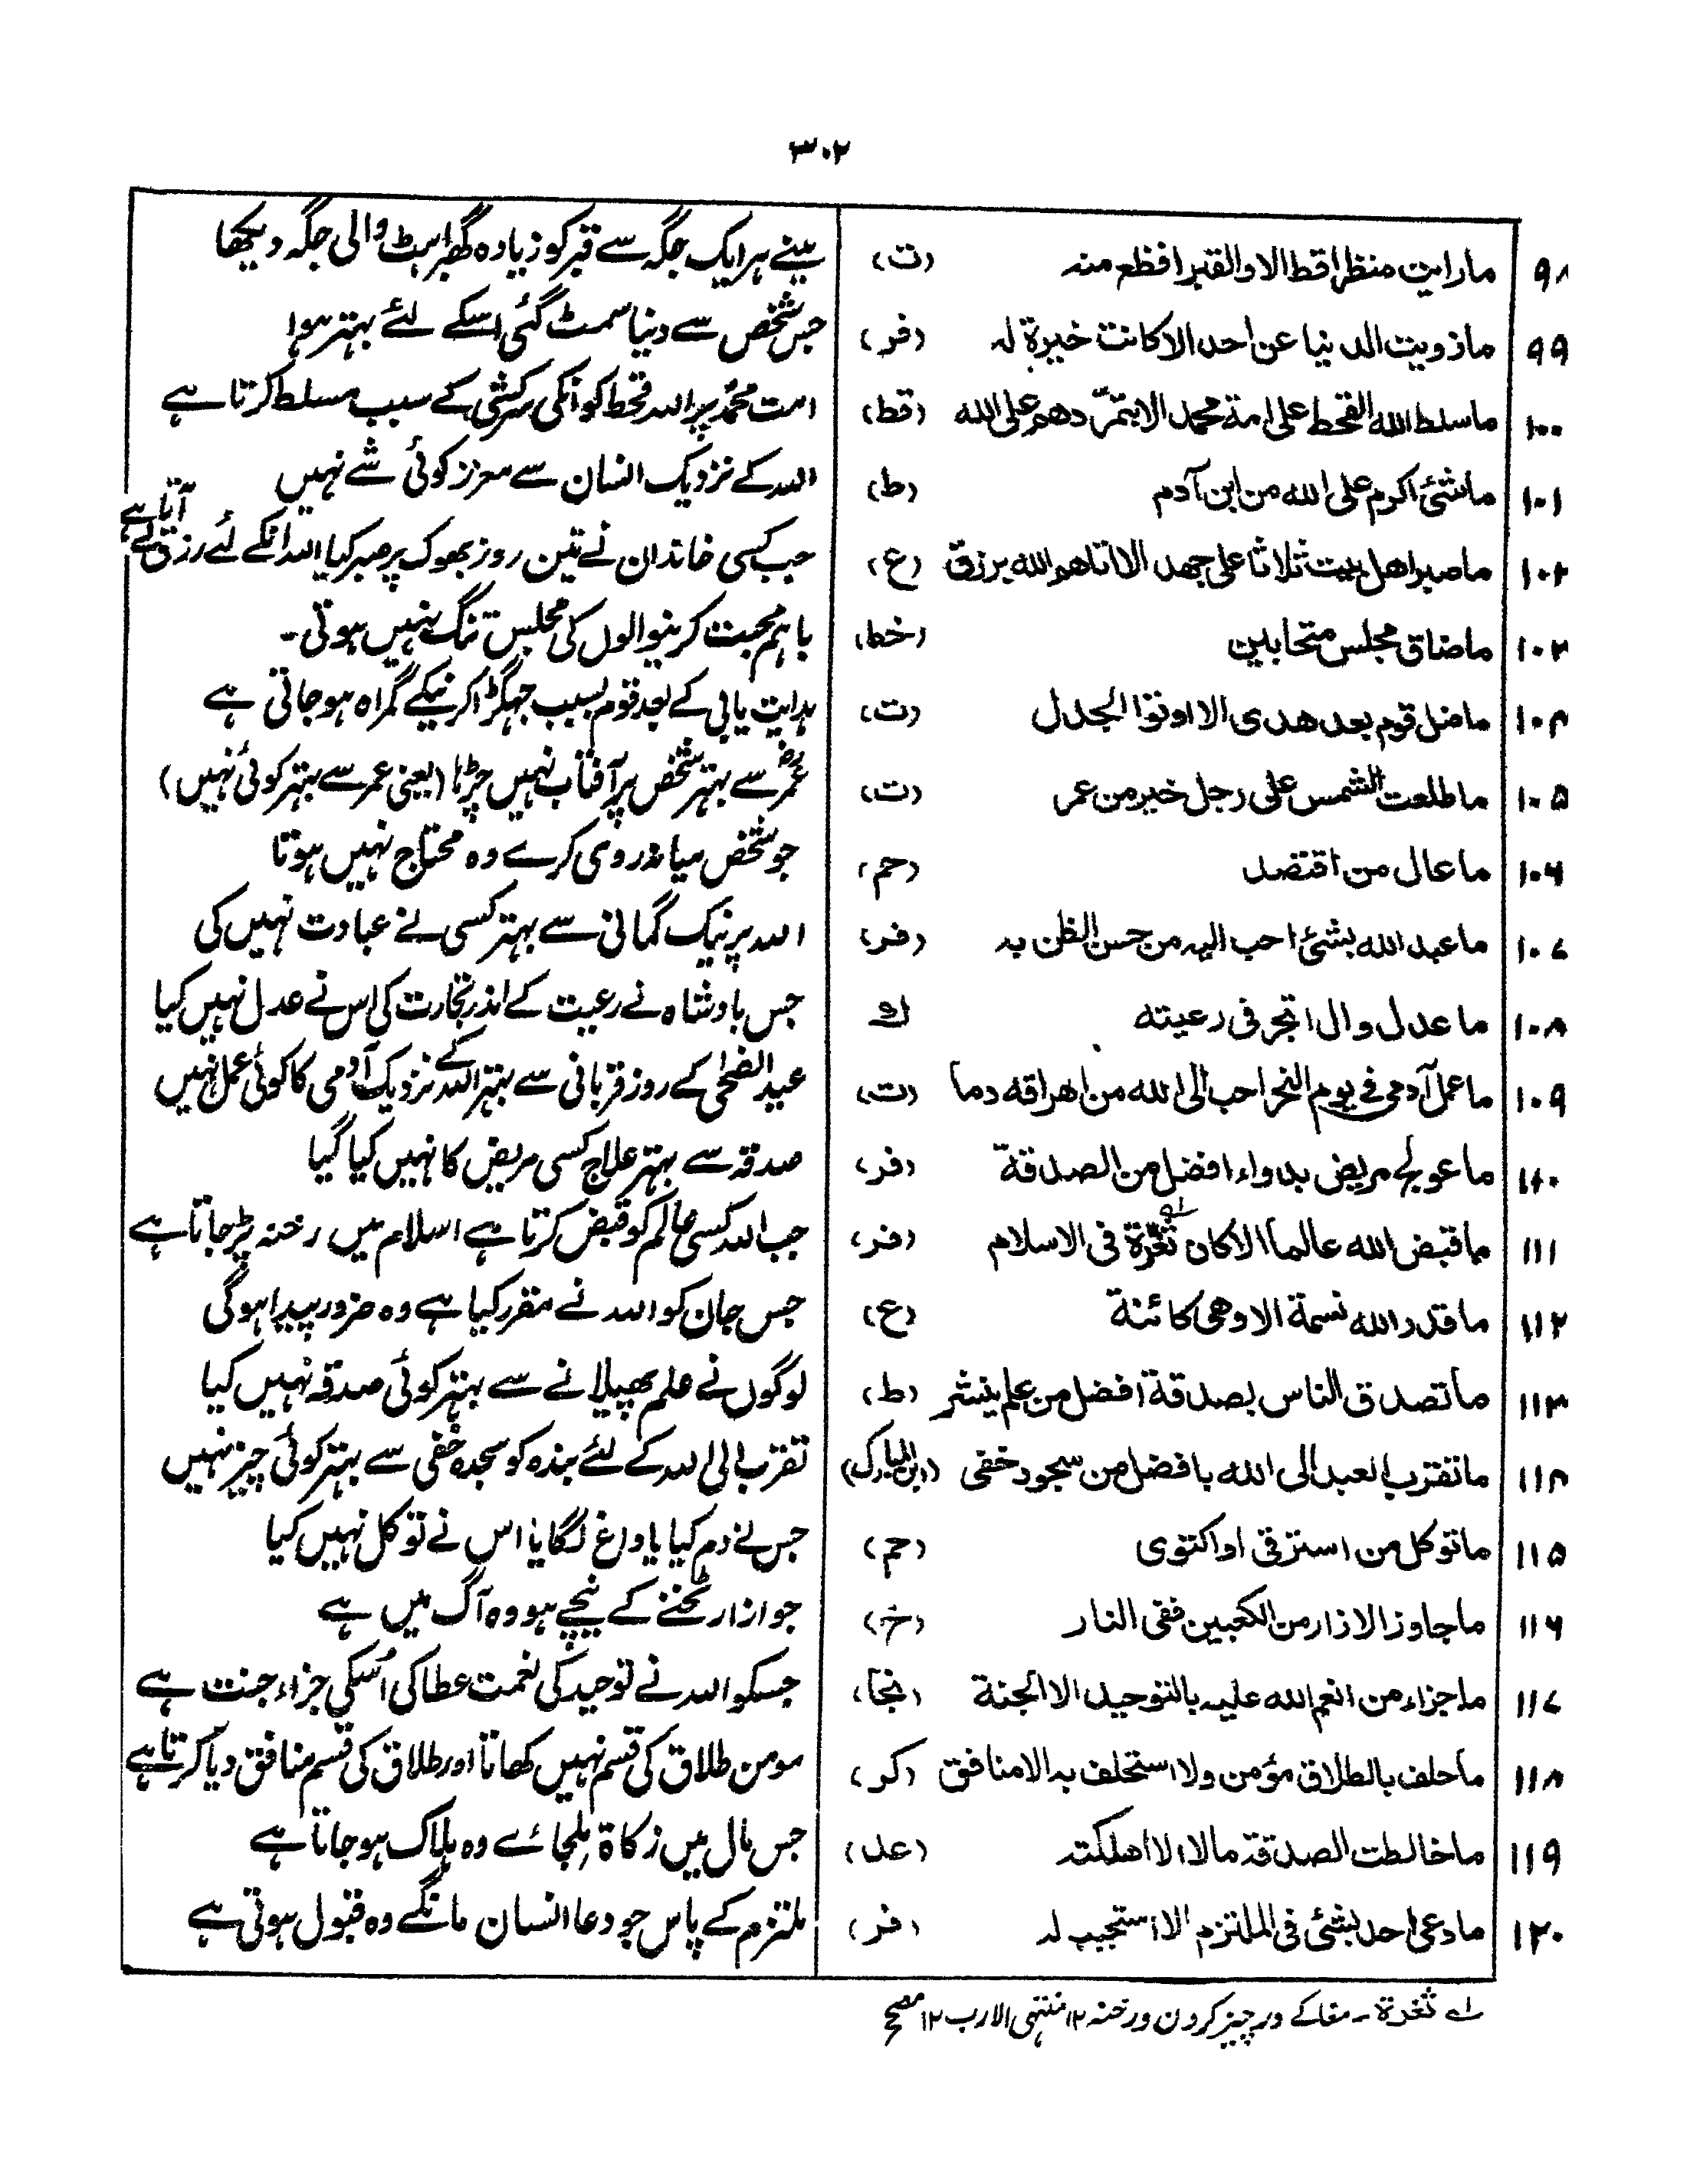 ۳۰۲
۹۸ مارایت منظرا قط الا والقبر افظع منہ (ت) مینے ہر ایک جگہ سے قبر کو زیادہ گھبراہٹ والی جگہ دیکھا
۹۹ مازویت الدنیا عن احد الا کانت خیرة لہ (فر) جس شخص سے دنیا سمٹ گئی اسکے لئے بہتر ہوا
۱۰۰ ماسلط اللہ القحط علی امة محمد الا بتمرّدھم علی اللہ (قط) امت محمدؐ پر اللہ قحط کو انکی سرکشی کے سبب مسلط کرتا ہے
۱۰۱ ماشئ اکرم علی اللہ من ابن آدم (ط) اللہ کے نزدیک انسان سے معزز کوئی شے نہیں
۱۰۲ ماصبر اھل بیت ثلاثا علی جھد الا اتاھم اللہ برزق (ع) جب کسی خاندان نے تین روز بھوک پر صبر کیا اللہ انکے لئے رزق لے آتا ہے
۱۰۳ ماضاق مجلس متحابین (خط) باہم محبت کرنیوالوں کی مجلس تنگ نہیں ہوتی۔
۱۰۴ ماضل قوم بعد ھدی الا اوتوا الجدل (ت) ہدایت یابی کے بعد قوم بسبب جھگڑا کرنیکے گمراہ ہو جاتی ہے
۱۰۵ ماطلعت الشمس علی رجل خیر من عمر (ت) عمرؓ سے بہتر شخص پر آفتاب نہیں چڑہا (یعنی عمر سے بہتر کوئی نہیں)
۱۰۶ ماعال من اقتصد (حم) جو شخص میانہ روی کرے وہ محتاج نہیں ہوتا
۱۰۷ ماعبد اللہ بشئ احب الیہ من حسن الظن بہ (فر) اللہ پر نیک گمانی سے بہتر کسی نے عبادت نہیں کی
۱۰۸ ماعدل وال اتجر فی رعیتہ جس بادشاہ نے رعیت کے اندر تجارت کی اس نے عدل نہیں کیا
۱۰۹ ماعمل آدمی فی یوم النحر احب الی اللہ من اھراقہ دما (ت) عید الضحیٰ کے روز قربانی سے بہتر اللہ کے نزدیک آدمی کا کوئی عمل نہیں
۱۱۰ ماعولج مریض بدواء افضل من الصدقة (فر) صدقہ سے بہتر علاج کسی مریض کا نہیں کیا گیا
۱۱۱ ماقبض اللہ عالما الا کان ثغرة لہ فی الاسلام (فر) جب اللہ کسی عالم کو قبض کرتا ہے اسلام میں رخنہ پڑ جاتا ہے
۱۱۲ ماقدر اللہ نسمة الا وھی کائنة (ع) جس جان کو اللہ نے مقرر کیا ہے وہ ضرور پیدا ہوگی
۱۱۳ ماتصدق الناس بصدقة افضل من علم ینشر (ط) لوگوں نے علم پھیلانے سے بہتر کوئی صدقہ نہیں کیا
۱۱۴ ماتقرب العبد الی اللہ بافضل من سجود خفی (ابن المبارک) تقرب الی اللہ کے لئے بندہ کو سجدہ خفی سے بہتر کوئی چیز نہیں
۱۱۵ ماتوکل من استرقی او اکتوی (حم) جس نے دم کیا یا داغ لگایا اس نے توکل نہیں کیا
۱۱۶ ماجاوز الازار من الکعبین ففی النار (خ) جو ازار ٹخنے کے نیچے ہو وہ آگ میں ہے
۱۱۷ ماجزاء من انعم اللہ علیہ بالتوحید الا الجنة (نجا) جسکو اللہ نے توحید کی نعمت عطا کی اُسکی جزاء جنت ہے
۱۱۸ ماحلف بالطلاق مؤمن ولا استحلف بہ الا منافق (کر) مومن طلاق کی قسم نہیں کھاتا اور طلاق کی قسم منافق دیا کرتا ہے
۱۱۹ ماخالطت الصدقة مالا الا اھلکتہ (عد) جس مال میں زکاة ملجائے وہ ہلاک ہو جاتا ہے
۱۲۰ مادعی احد بشئ فی الملتزم الا استجیب لہ (فر) ملتزم کے پاس جو دعا انسان مانگے وہ قبول ہوتی ہے
لے ثغرة ۔ مغاکے در چیز کردن و رخنہ ۱۲ منتہی الارب ۱۲ مصحح